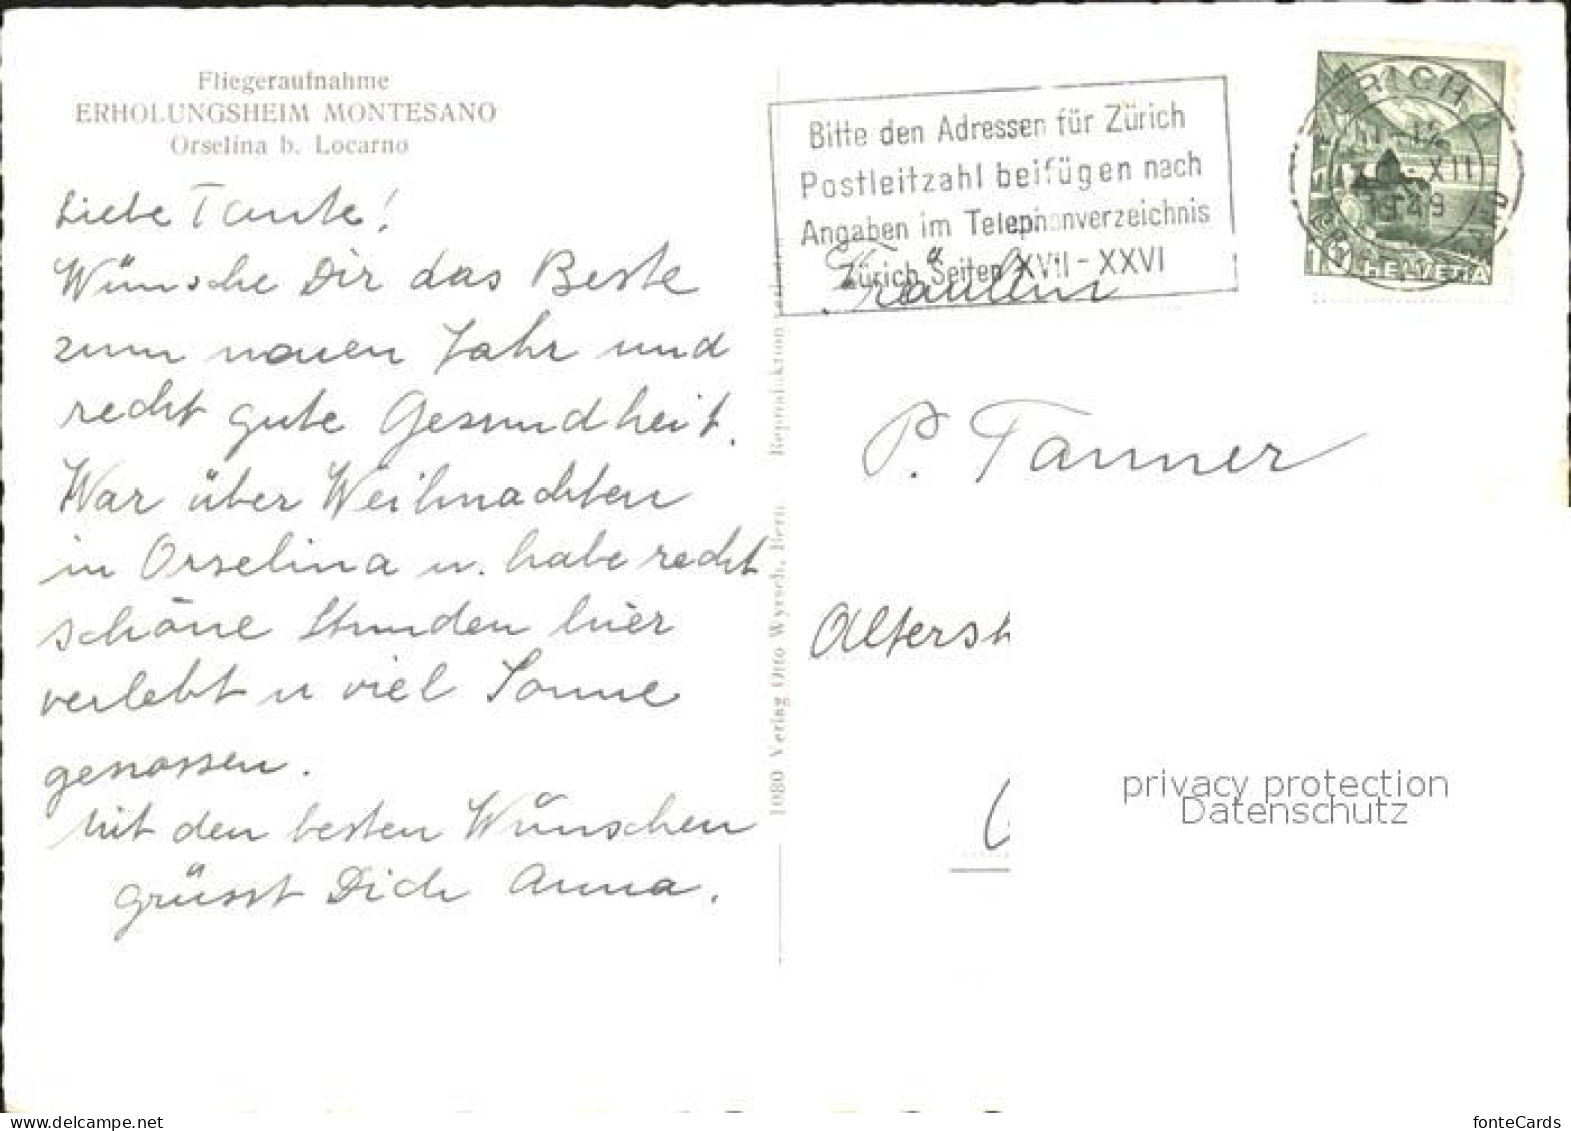 Fliegeraufnahme
ERHOLUNGSHEIM MONTESANO
Orselina b. Locarno
Liebe Tante!
Wünsche Dir das Beste
zum neuen Jahr und
recht gute Gesundheit.
War über Weihnachten
in Orselina u. habe recht
schöne Stunden hier
verlebt u viel Sonne
genossen.
Mit den besten Wünschen
grüsst Dich Anna.
1080 Verlag Otto Wyrsch, Bern. Reproduktion
Bitte den Adressen für Zürich
Postleitzahl beifügen nach
Angaben im Telephonverzeichnis
Zürich Seiten XVII - XXVI
XII
1949
10 HELVETIA
Fräulein
P. Tanner
Altersh
privacy protection
Datenschutz
www.delcampe.net
fonteCards